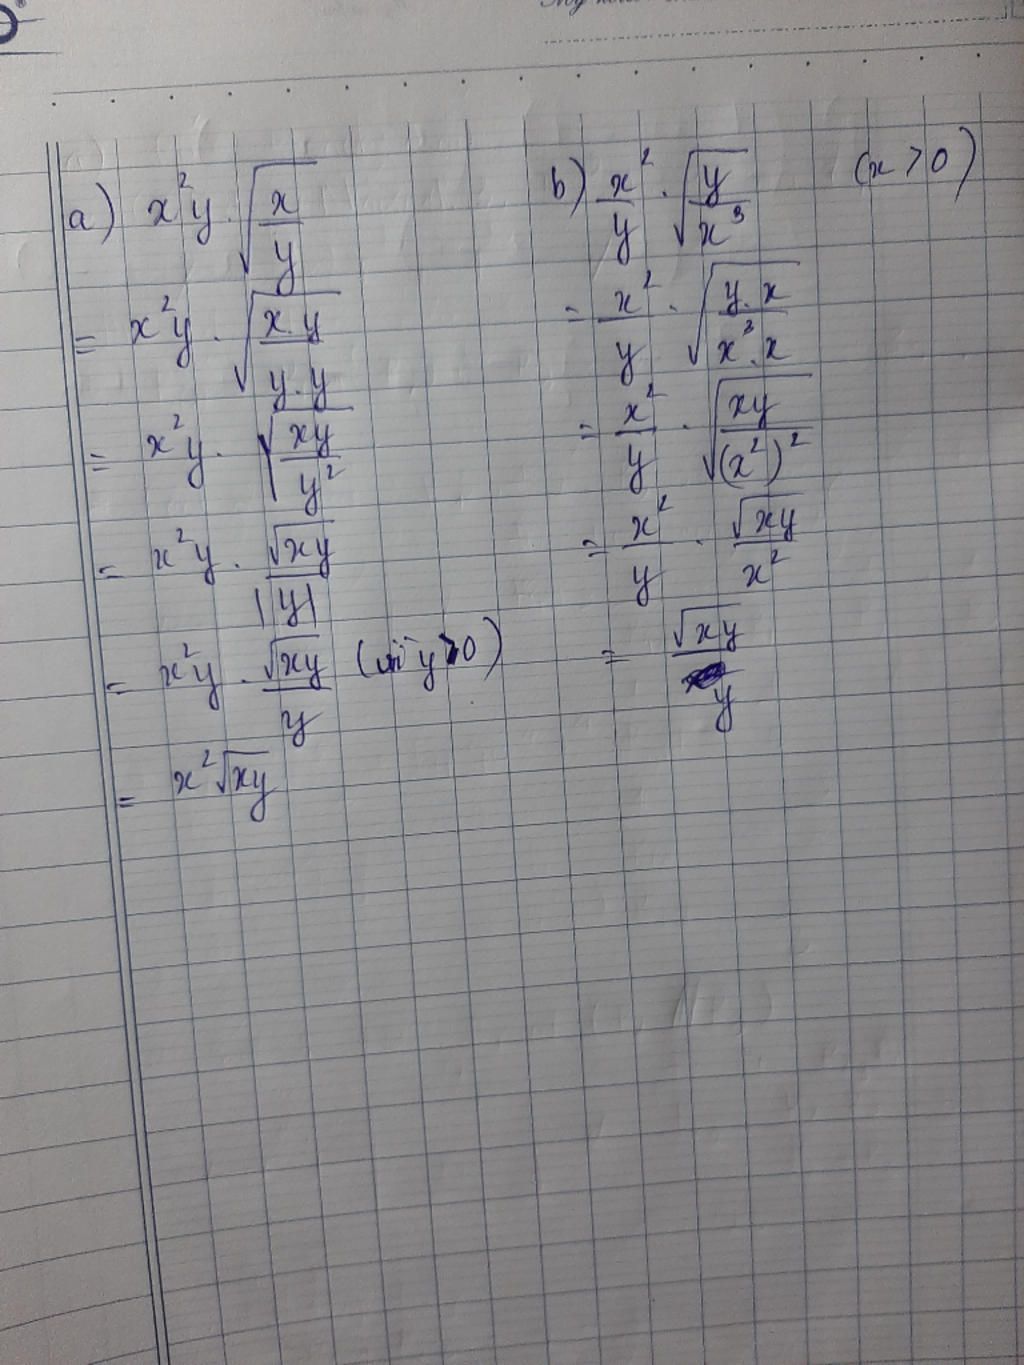 a) x²y . √(x/y)
= x²y . √(x.y / y.y)
= x²y . √(xy / y²)
= x²y . √xy / |y|
= x²y . √xy / y (vì y > 0)
= x²√xy
b) x²/y . √(y/x³) (x > 0)
= x²/y . √(y.x / x³.x)
= x²/y . √(xy / (x²)²)
= x²/y . √xy / x²
= √xy / y